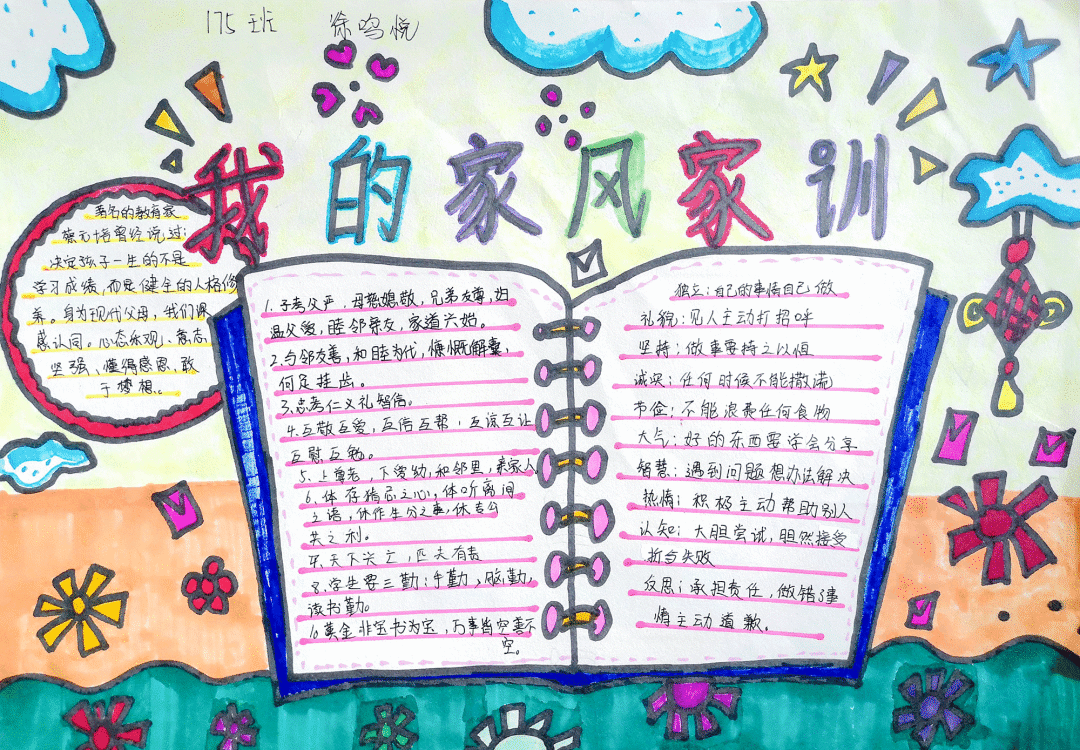 175班 徐鸣悦
我的家风家训
著名的教育家
蔡元培曾经说过:
决定孩子一生的不是
学习成绩,而是健全的人格修
养。身为现代父母,我们深
感认同。心态乐观、意志
坚强、懂得感恩、敢
于梦想。
1.子孝父严,母慈媳敬,兄弟友尊,妇
温父爱,睦邻亲友,家道兴始。
2.与邻友善,和睦为代,慷慨解囊,
何足挂齿。
3.忠孝仁义礼智信。
4.互敬互爱,互信互帮,互谅互让
互慰互勉。
5.上尊老,下爱幼,和邻里,亲家人
6.休存猜忌之心,休听离间
之语,休作生分之事,休专公
共之利。
7.天下兴亡,匹夫有责
8.学生要三勤:手勤,脑勤,
读书勤。
10.黄金非宝书为宝,万事皆空善不
空。
独立:自己的事情自己做
礼貌:见人主动打招呼
坚持:做事要持之以恒
诚实:任何时候不能撒谎
节俭:不能浪费任何食物
大气:好的东西要学会分享
智慧:遇到问题想办法解决
热情:积极主动帮助别人
认知:大胆尝试,胆然接受
折与失败
反思:承担责任,做错了事
情主动道歉。